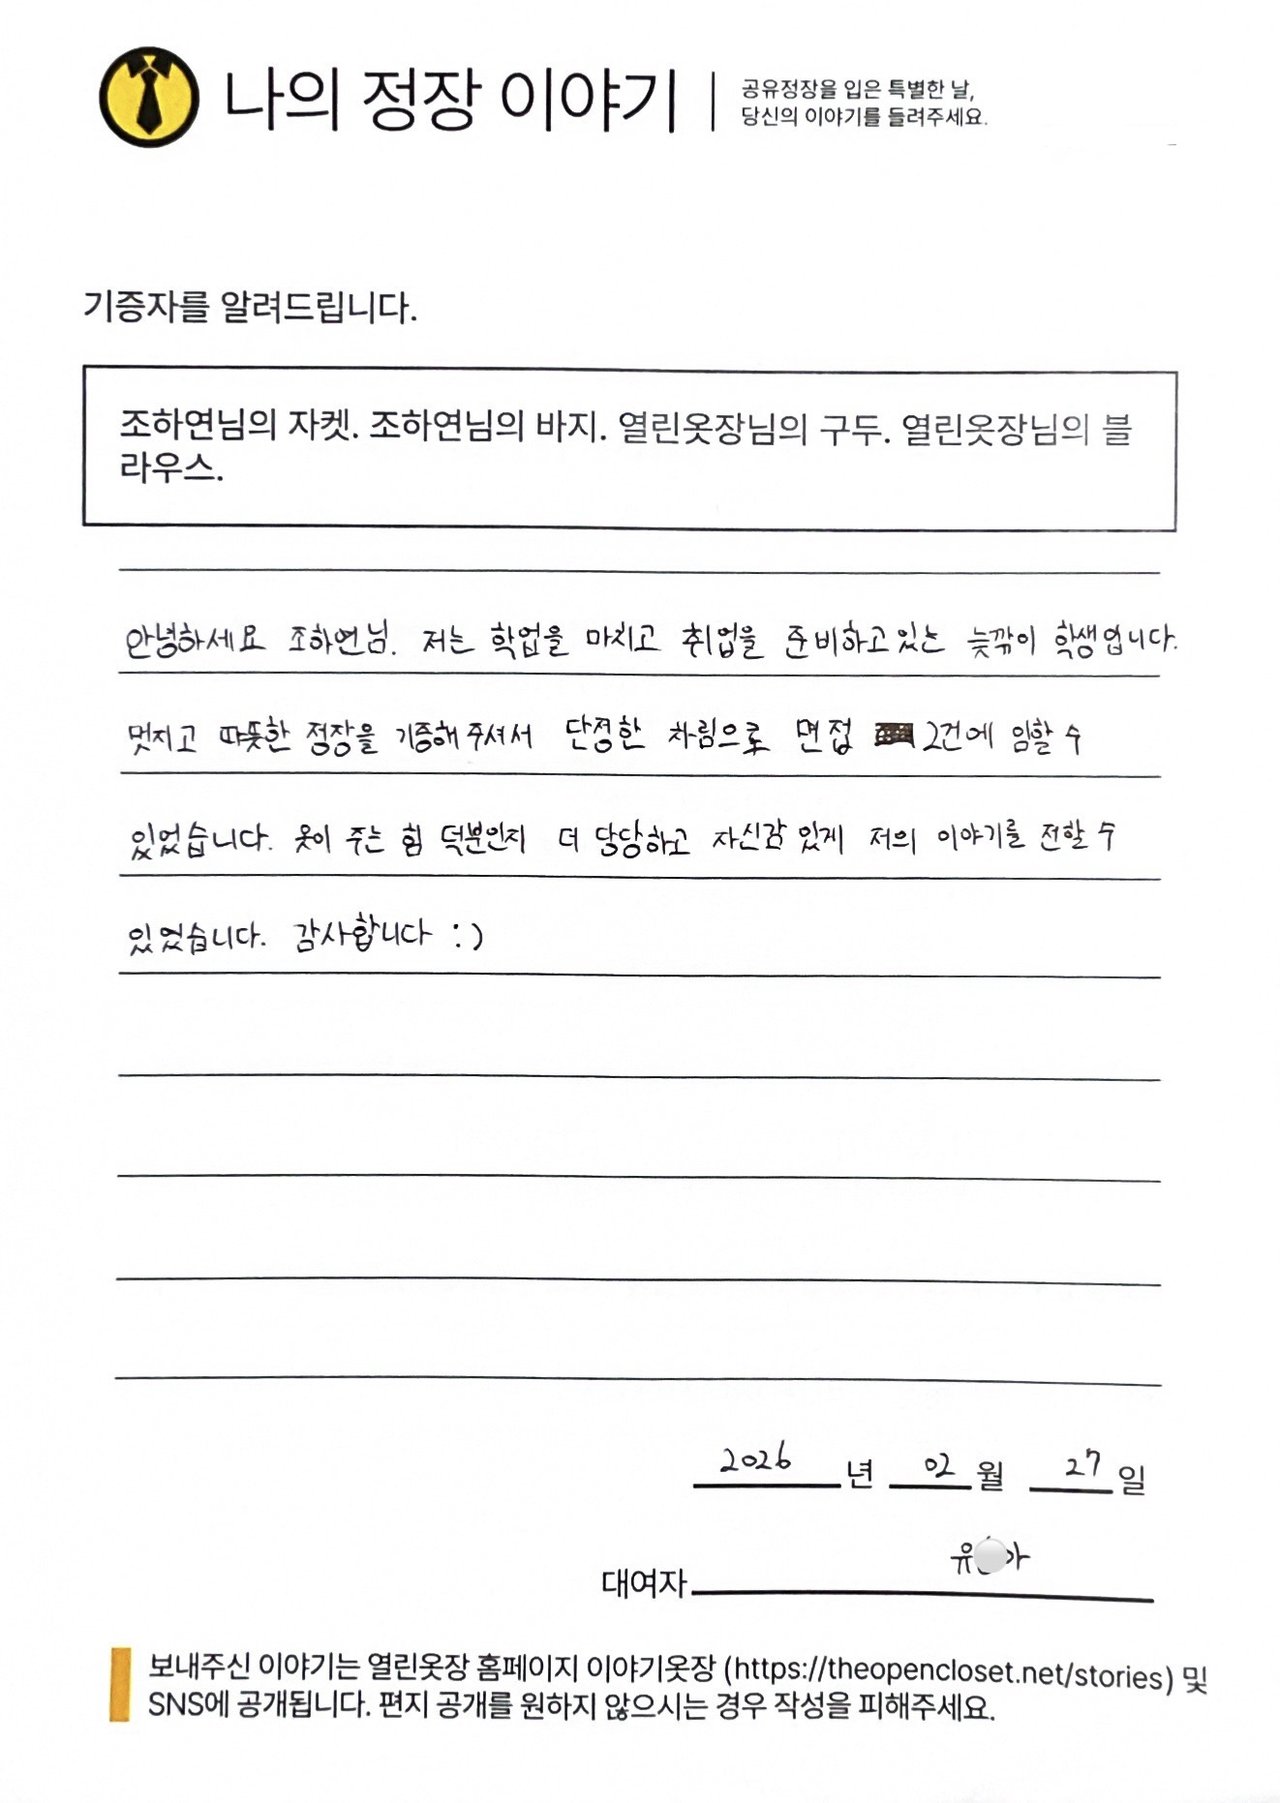 나의 정장 이야기
공유정장을 입은 특별한 날,
당신의 이야기를 들려주세요.
기증자를 알려드립니다.
조하연님의 자켓. 조하연님의 바지. 열린옷장님의 구두. 열린옷장님의 블
라우스.
안녕하세요 조하연님. 저는 학업을 마치고 취업을 준비하고있는 늦깎이 학생입니다.
멋지고 따뜻한 정장을 기증해주셔서 단정한 차림으로 면접 2건에 임할 수
있었습니다. 옷이 주는 힘 덕분인지 더 당당하고 자신감 있게 저의 이야기를 전할 수
있었습니다. 감사합니다 :)
2026 년 02 월 27 일
대여자 유 아
보내주신 이야기는 열린옷장 홈페이지 이야기옷장 (https://theopencloset.net/stories) 및
SNS에 공개됩니다. 편지 공개를 원하지 않으시는 경우 작성을 피해주세요.